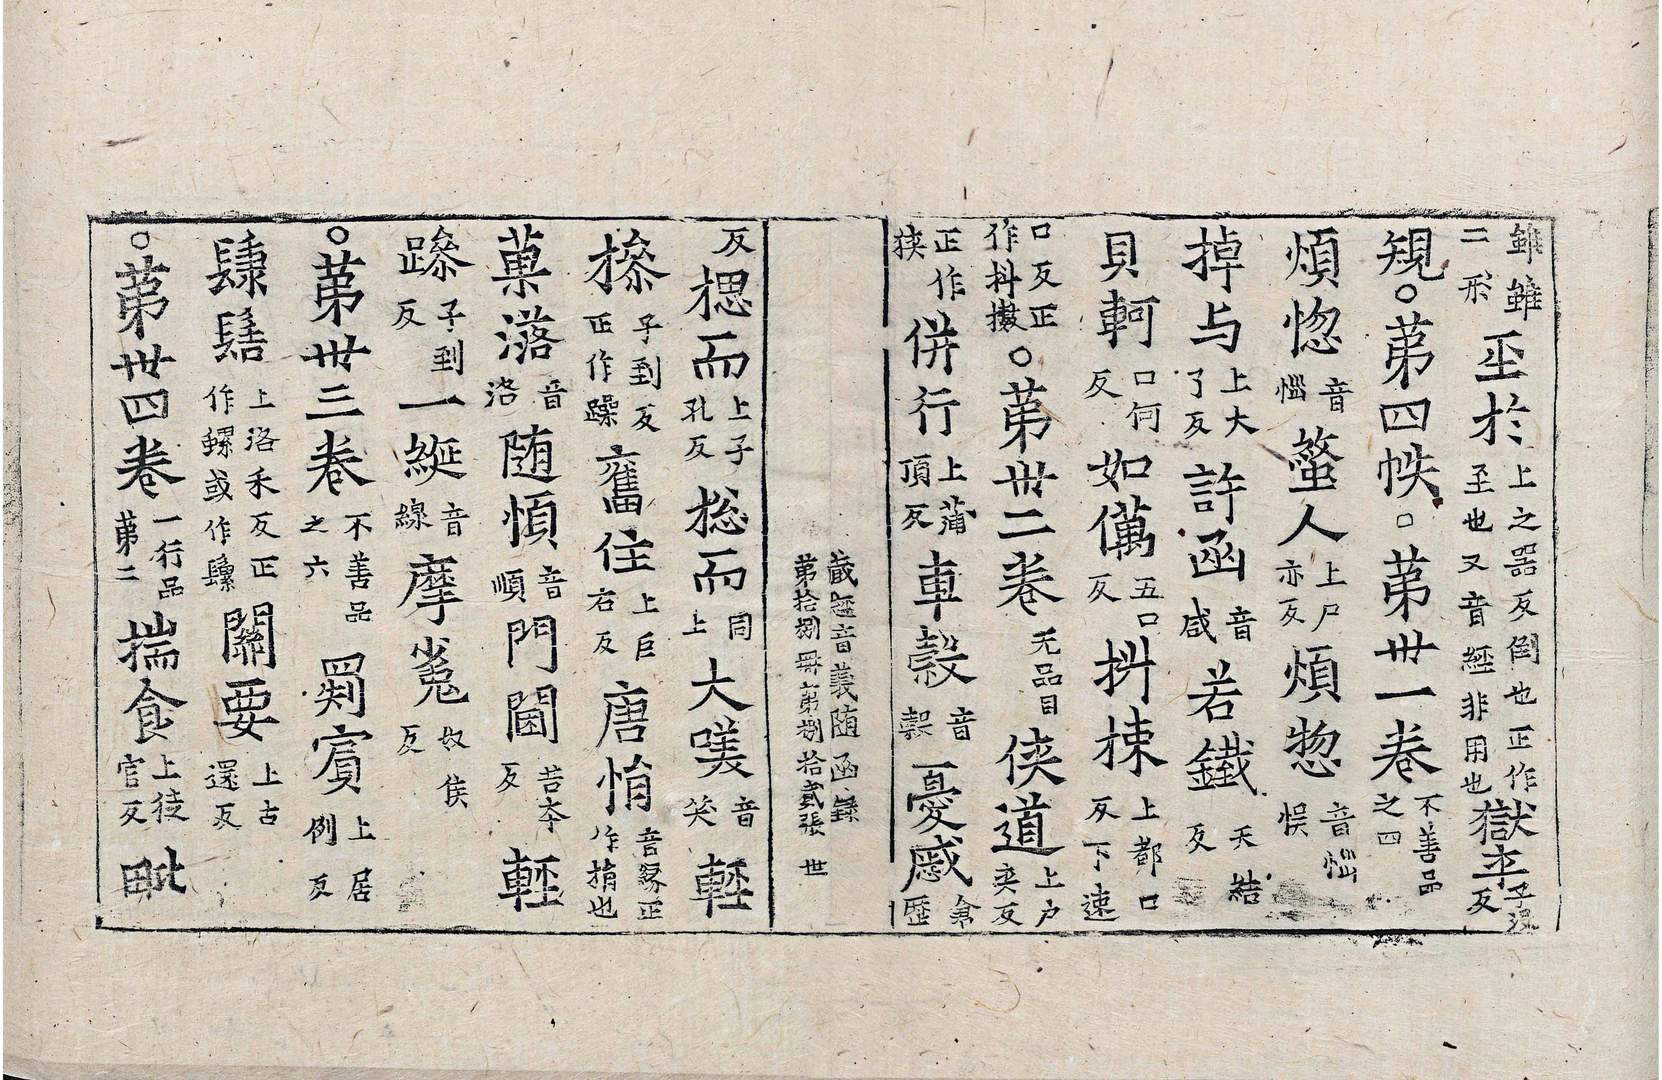 雖雖二形 坙於上之器反倒也正作至也又音經非用也 獄卒子沒反
䂓○第四帙○第卅一卷不善品之四
煩惚音惱 螫人上尸亦反 煩惣音惱悮
掉与上大了反 許函音咸 若鐵天結反
貝軻口何反 如㒖五口反 抖㨂上都口反下速
口反正作抖擻○第卅二卷无品目 俠道上户夾反
正作狹 併行上蒲頂反 車轂音穀 憂慼倉歷
藏經音義随函錄
第拾捌冊第捌拾貳張 世
反 揌而上子孔反 揔而同上 大𠸍音笑 軽
㨱子到反正作躁 舊住上巨右反 唐㨋音緣正作捐也
菓落音洛 随愩音順 門閫苦夲反 軽
䠂子到反 一綖音線 摩㝹奴侯反
○第卅三卷不善品之六 罽賔上居例反
𦘺䯝上洛禾反正作螺或作䯁 關要上古還反
○第卅四卷一行品第二 揣食上徒官反 毗